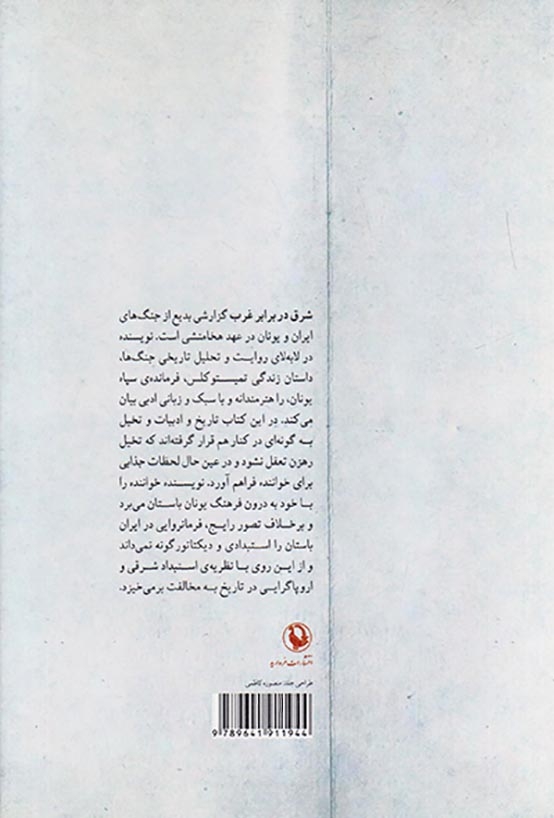 شرق در برابر غرب گزارشی بدیع از جنگ‌های
ایران و یونان در عهد هخامنشی است. نویسنده
در لابه‌لای روایت و تحلیل تاریخی جنگ‌ها،
داستان زندگی تمیستوکلس، فرمانده‌ی سپاه
یونان، را هنرمندانه و با سبک و زبانی ادبی بیان
می‌کند. در این کتاب تاریخ و ادبیات و تخیل
به گونه‌ای در کنار هم قرار گرفته‌اند که تخیل
رهزن تعقل نشود و در عین حال لحظات جذابی
برای خواننده فراهم آورد. نویسنده خواننده را
با خود به درون فرهنگ یونان باستان می‌برد
و برخلاف تصور رایج، فرمانروایی در ایران
باستان را استبدادی و دیکتاتورگونه نمی‌داند
و از این روی با نظریه‌ی استبداد شرقی و
اروپاگرایی در تاریخ به مخالفت برمی‌خیزد.
انتشارات مروارید
طراحی جلد: منصوره کاظمی
9 789641 911944